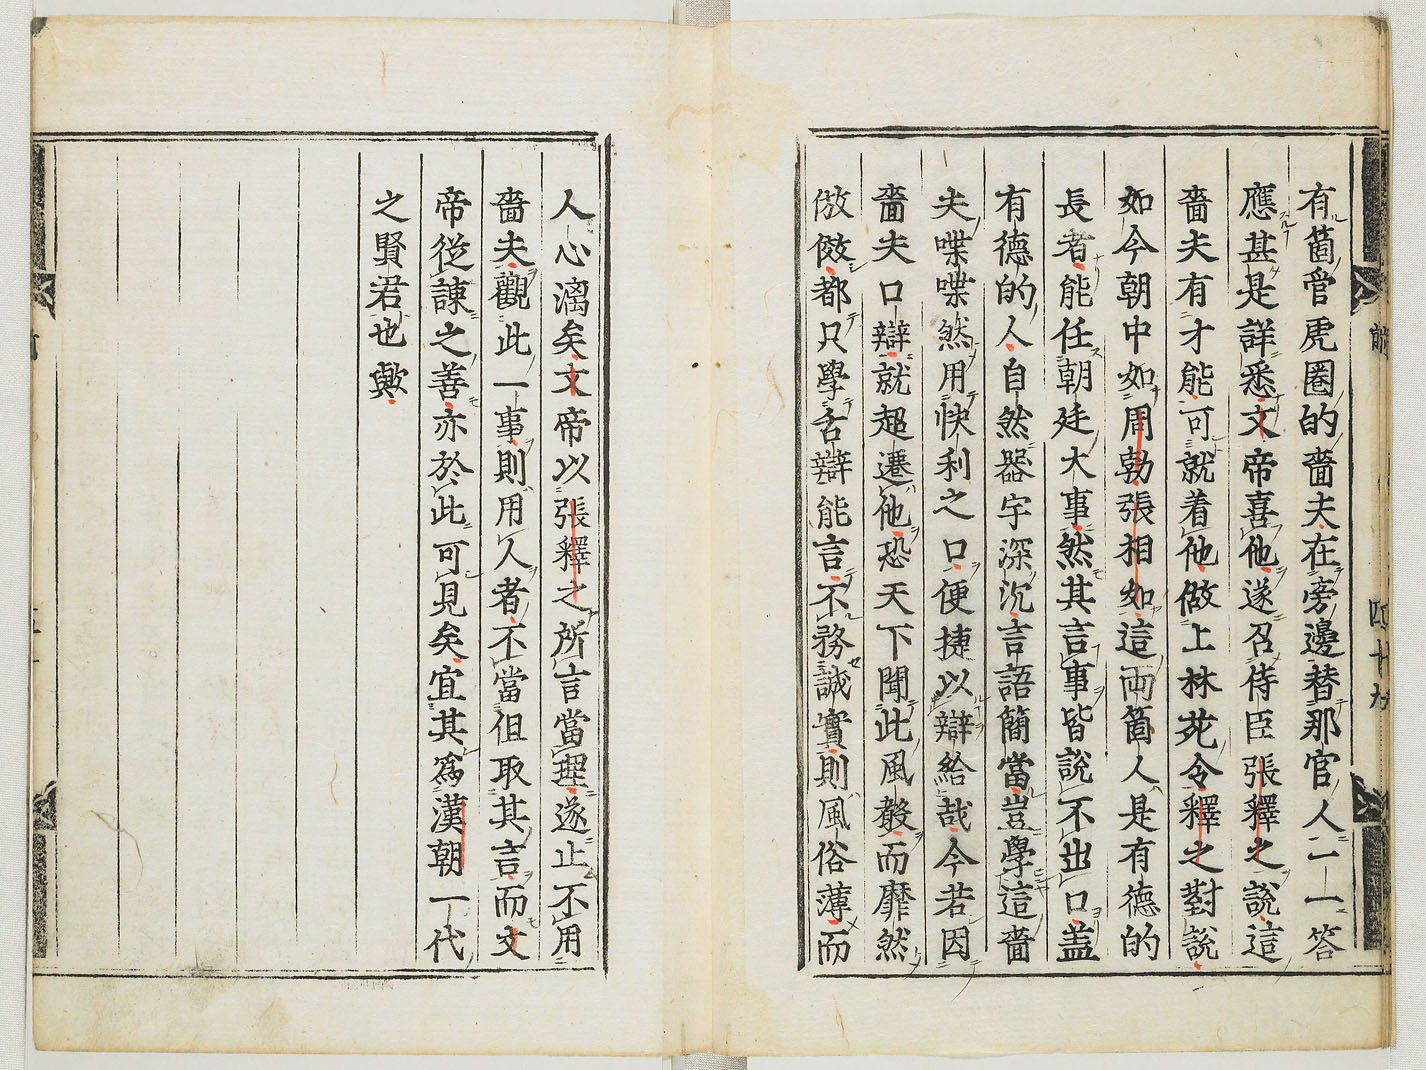 有箇管虎圈的嗇夫在旁邊替那官人一一答
應甚是詳悉文帝喜他遂召侍臣張釋之說這
嗇夫有才能可就着他做上林苑令釋之對說
如今朝中如周勃張相如這兩箇人是有德的
長者能任朝廷大事然其言事皆說不出口盖
有德的人自然器宇深沉言語簡當豈學這嗇
夫喋喋然用快利之口便捷以辯給哉今若因
嗇夫口辯就超遷他恐天下聞此風聲而靡然
倣傚都只學舌辯能言不務誠實則風俗薄而
人心漓矣文帝以張釋之所言當理遂止不用
嗇夫觀此一事則用人者不當但取其言而文
帝從諫之善亦於此可見矣宜其爲漢朝一代
之賢君也歟